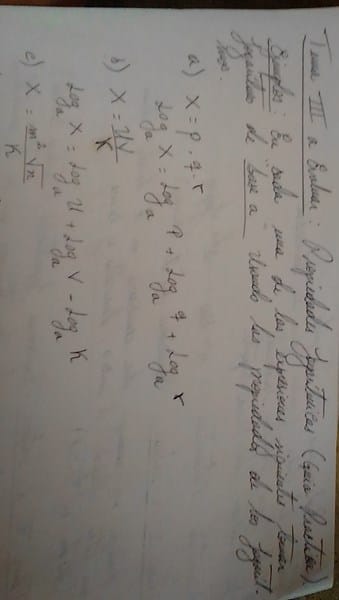 Tema III a Evaluar: Propiedades Logaritmicas (Guia Practica)
Ejemplos: En cada una de las expresiones siguientes tomar
logaritmos de base a Usando las propiedades de los logarit-
mos.
a) X = p . q . r
Log_a X = Log_a P + Log_a q + Log_a r
b) X = UV/K
Log_a X = Log_a U + Log_a V - Log_a K
c) X = m² √n / K